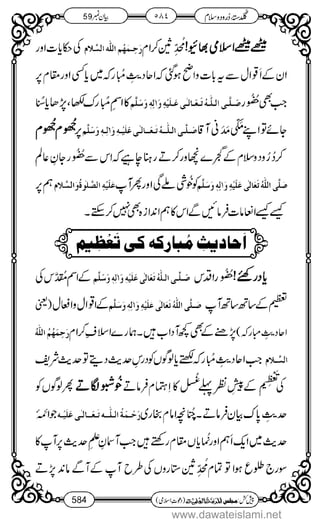 گلدستۂ درود و سلام ۵۸٤ بیان نمبر 59
میٹھے میٹھے اسلامی بھائیو! مُحَدِّثینِ کرام رَحِمَهُمُ اللهُ السَّلَام کی حکایات اور
ان کے اَقوال سے یہ بات واضح ہو گئی کہ احادیثِ مُبارکہ میں یا کسی اور مقام پر
جب بھی حُضُور صَلَّى اللهُ تَعَالٰى عَلَيْهِ وَاٰلِهٖ وَسَلَّم کا اسمِ مُبارک لکھا، پڑھا یا سُنا
جائے تو اپنے مَکِّی مَدَنی آقا صَلَّى اللهُ تَعَالٰى عَلَيْهِ وَاٰلِهٖ وَسَلَّم پر جُھوم جُھوم
کر دُرُود و سلام کے گجرے نچھاور کرتے رہنا چاہیے کہ اس سے حُضُور جانِ عالَم
صَلَّى اللهُ تَعَالٰى عَلَيْهِ وَاٰلِهٖ وَسَلَّم کو خوشی ملے گی اور پھر آپ عَلَيْهِ الصَّلٰوةُ وَالسَّلَام ہم پر
کیسے کیسے انعامات فرمائیں گے اس کا ہم اندازہ بھی نہیں کر سکتے۔
اَحادیثِ مُبارکہ کی تَعْظِیْم
یاد رکھئے! حُضُورِ اقدس صَلَّى اللهُ تَعَالٰى عَلَيْهِ وَاٰلِهٖ وَسَلَّم کے اسمِ مُقدَّس کی
تعظیم کے ساتھ ساتھ آپ صَلَّى اللهُ تَعَالٰى عَلَيْهِ وَاٰلِهٖ وَسَلَّم کے اقوال و افعال (یعنی
احادیثِ مُبارکہ) پڑھنے کے بھی کچھ آداب ہیں۔ ہمارے اَسلافِ کرام رَحِمَهُمُ اللهُ
السَّلَام جب احادیثِ مُبارکہ لکھتے یا لوگوں کو درسِ حدیث دیتے تو حدیث شریف
کی تَعْظِیْم کے پیشِ نظر پہلے غُسل کا اہتمام فرماتے خوشبو لگاتے پھر لوگوں کو
حدیثِ پاک بیان فرماتے۔ چُنانچہ امام بخاری رَحْمَةُ اللهِ تَعَالٰى عَلَيْه جو اَئمۂ
حدیث میں ایک اہم اور نُمایاں مقام رکھتے ہیں جب آسمانِ عِلمِ حدیث پر آپ کا
سورج طلوع ہوا تو تمام مُحَدِّثین ستاروں کی طرح آپ کے آگے ماند پڑتے
584
پیش کش: مجلس المدینۃ العلمیۃ (دعوتِ اسلامی)
www.dawateislami.net